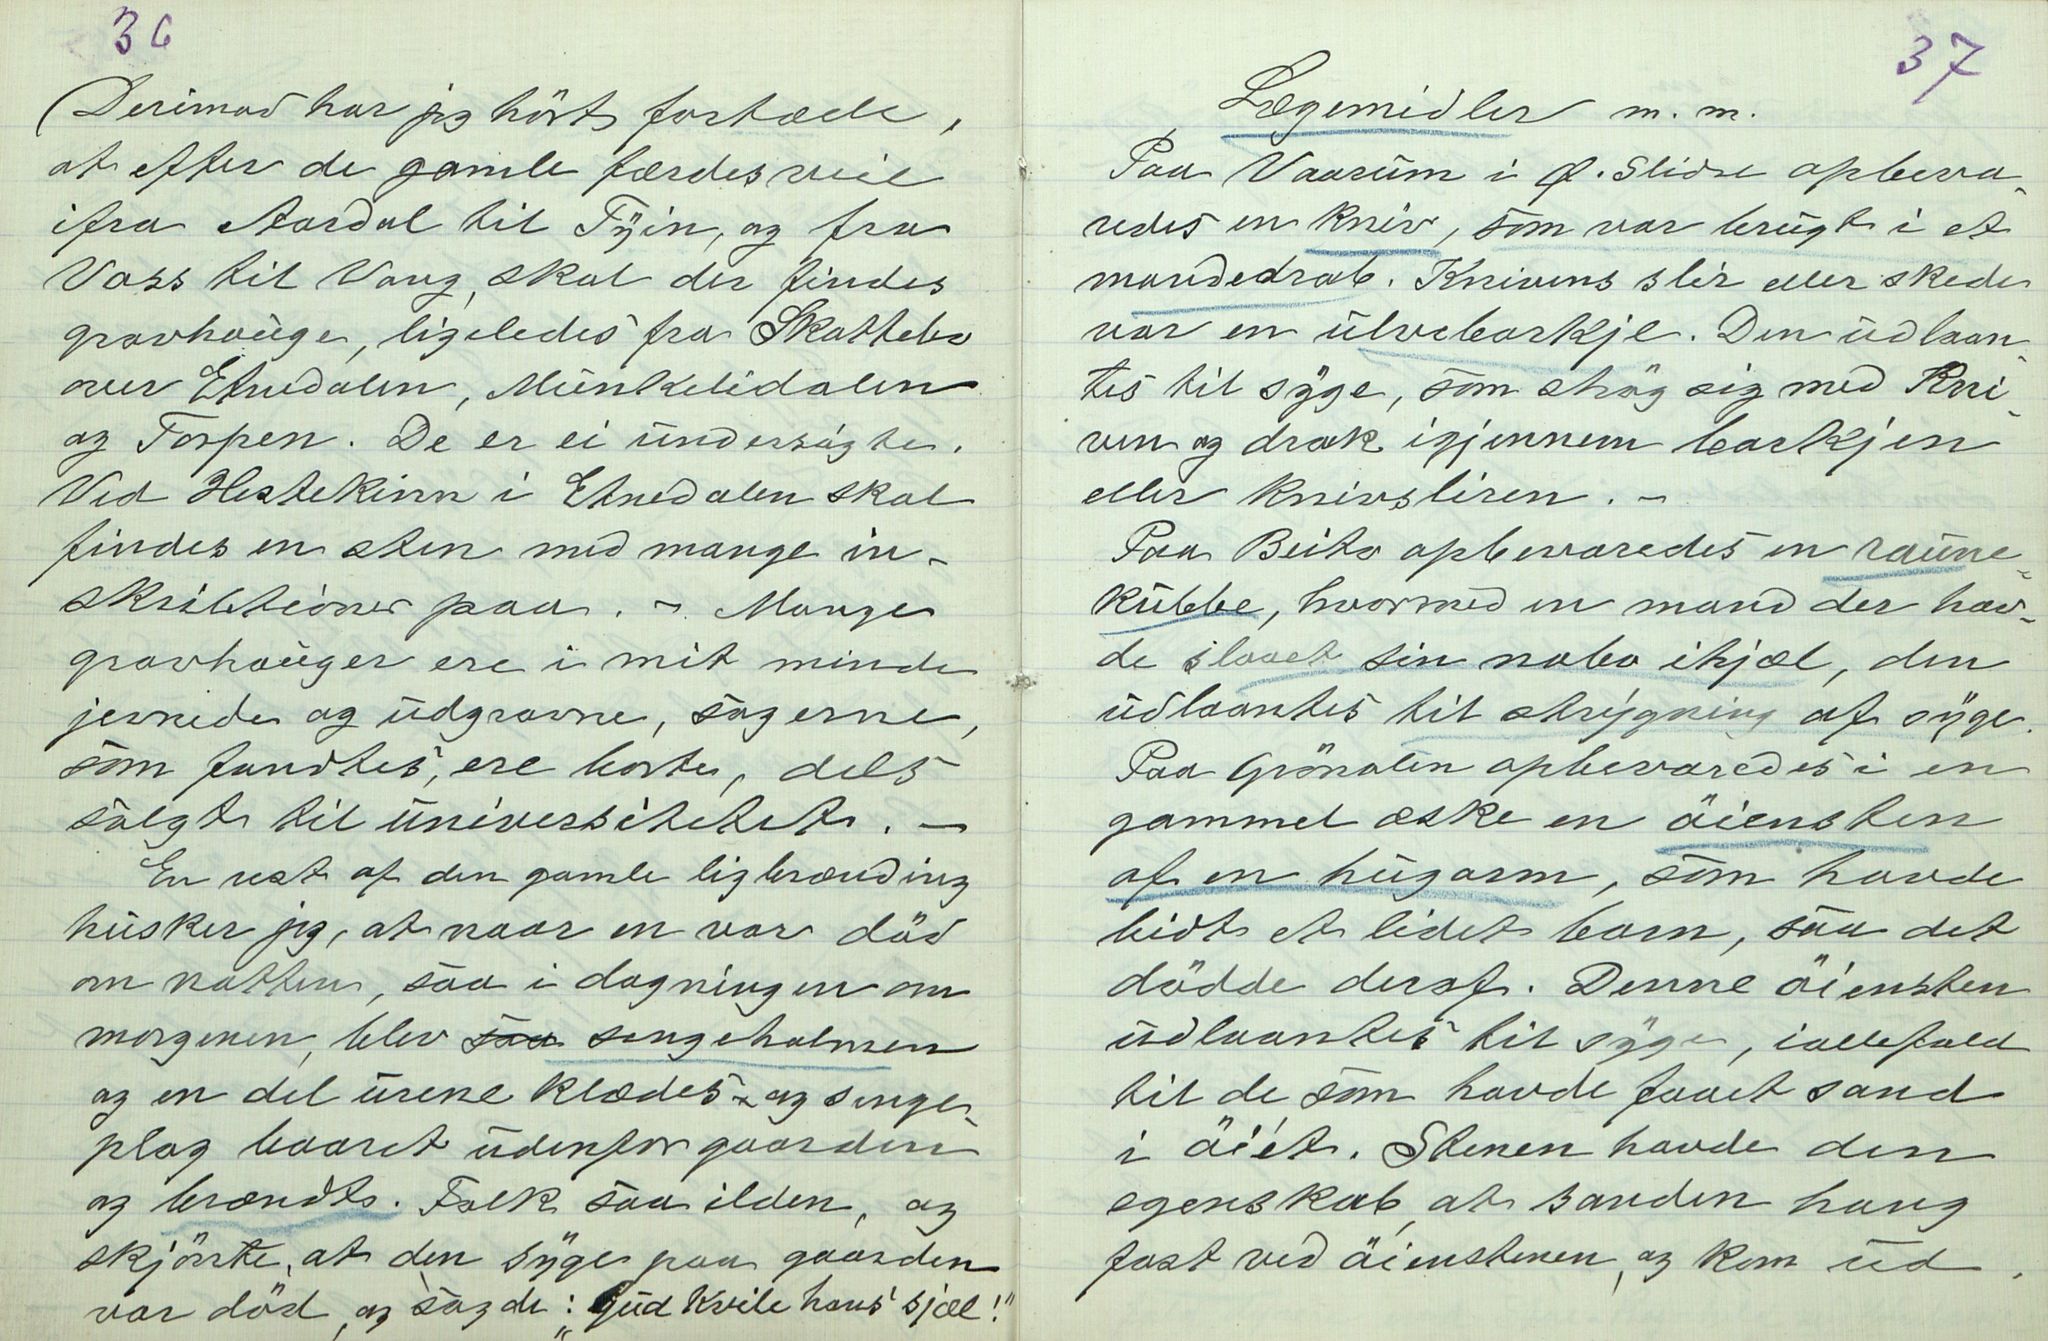 36
(Derimod har jeg hört fortælle,
at efter de gamle færdesveie
ifra Aardal til Tyin, og fra
Voss til Vang, skal der findes
gravhauge, ligeledes fra Skattebo
over Etnedalen, Munkelidalen
og Torpen. De er ei undersögte.
Ved Hestekinn i Etnedalen skal
findes en sten med mange in-
skribtioner paa. - Mange
gravhauger ere i mit minde
jevnede og udgravne, sagerne,
som fandtes, ere borte, dels
solgt til universitetet. -
En rest af den gamle ligbrænding
husker jeg, at naar en var död
om natten, saa i dagningen om
morgenen, blev saa sengehalmen
og en del urene klædes- og senge-
plag baaret udenfor gaarden
og brændt. Folk saa ilden, og
skjönte, at den syge paa gaarden
var död, og sagde: „Gud kvile hans sjæl!"
37
Lægemidler m. m.
Paa Vaarum i Ø. Slidre opbeva-
redes en kniv, som var brugt i et
mandedrab. Knivens slir eller skede
var en ulvebarkje. Den udlaan-
tes til syge, som strög sig med kni-
ven og drak igjennem barkjen
eller knivsliren. -
Paa Beito opbevaredes en raune-
kubbe, hvormed en mand der hav-
de slaaet sin nabo ihjæl, den
udlaantes til strygning af syge.
Paa Grönolen opbevaredes i en
gammel æske en öiensten
af en hugorm, som havde
bidt et lidet barn, saa det
dödde deraf. Denne öiensten
udlaantes til syge, iallefald
til de, som havde faaet sand
i öiet. Stenen havde den
egenskab, at sanden hang
fast ved öienstenen, og kom ud.